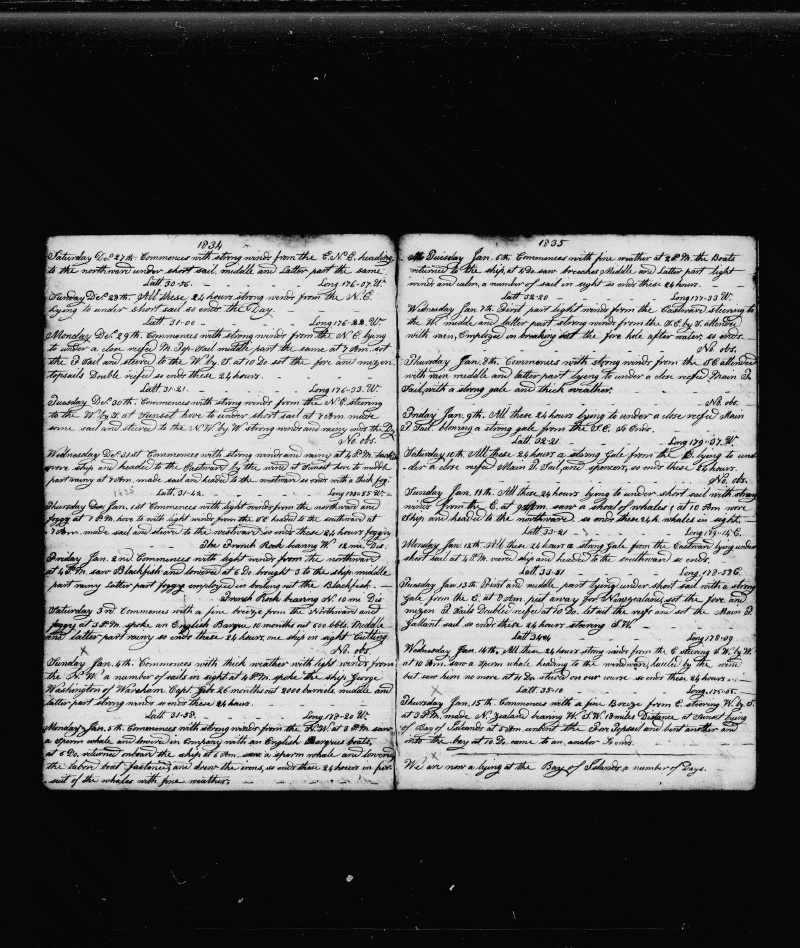 1834
Saturday Dec. 27th Commences with strong winds from the E.N.E. heading
to the northward under short sail, middle and Latter part the same
Latt 30-56. Long 176-07 W.
Sunday Dec. 28th. All these 24 hours strong winds from the N.E.
lying to under short sail so ends the Day.
Latt 31-00 Long 176-22 W.
Monday Dec. 29th. Commences with strong winds from the N.E. lying
to under a close reefed M. Top-Sail middle part the same at 7 AM. set
the F Sail and steered to the W by S. at 10 Do set the fore and mizen
topsails Double reefed so ends these 24 hours.
Latt. 31-21. Long 176-33. W.
Tuesday Dec. 30th. Commences with strong winds from the N.E. steering
to the W. by S. at Sunset hove to under short sail at 7 AM. made
some sail and steered to the N.W. by W strong winds and rainy ends the Day
No. obs.
Wednesday Dec. 31st Commences with strong winds and rainy at 4 P.M. tack
ship and headed to the Eastward by the wind at Sunset hove to middle
part rainy at 7 Am. made sail and headed to the westward so ends with a thick fog.
1835 Latt. 31-42. Long 178-55 W.
Thursday Jan. 1st Commences with light winds from the northward and
foggy at 7 P.M. hove to with light winds from the S.E. headed to the southward at
7 Am. made sail and steered to the westward so ends these 24 hours foggy
The French Rock bearing W 12 me Dis
Friday Jan. 2nd Commences with light winds from the northward
at 4 P.M. saw Blackfish and lowered at 6 Do. brought 3 to the ship, middle
part rainy latter part foggy employed in boiling out the Blackfish.
French Rock bearing N. 10 me Dis
Saturday 3rd Commences with a fine breeze from the Northward and
foggy at 3 P.M. spoke an English Barque 10 months out 600 bbls. Middle
and latter part rainy so ends these 24 hours, one ship in sight Cutting
No. obs.
Sunday Jan. 4th. Commences with thick weather with light winds from
the N.W. a number of sails in sight at 4 P.M. spoke the ship George
Washington of Wareham Capt. Gibbs 26 months out 2000 barrels, middle and
latter part strong winds so ends these 24 hours.
Latt 31-58. Long 178-20 W.
Monday Jan. 5th Commences with strong winds from the N.W. at 3 P.M. saw
a sperm whale and lowered in Company with an English Barques boats,
at 6 Do. returned onboard the ship at 8 Am. saw a sperm whale and lowered
the labor boat fastened and drew the irons, so ends these 24 hours in per-
suit of the whales with fine weather.
1835
Tuesday Jan. 6th Commences with fine weather at 2 P.M. the Boats
returned to the ship, at 4 Do saw breaches Middle and latter part light
winds and calm, a number of sail in sight so ends these 24 hours.
Latt 32-20 Long 177-33 W.
Wednesday Jan. 7th. First part light winds from the Eastward steering to
the W. middle and latter part strong winds from the S.E. by S. attended
with rain, Employed in breaking out the fore hole after water, so ends.
No. obs.
Thursday Jan. 8th. Commences with strong winds from the S.E attended
with rain middle and latter part lying to under a close reefed Main T.
Sail, with a strong gale and thick weather.
No. obs.
Friday Jan. 9th. All these 24 hours lying to under a close reefed Main
T. Sail blowing a strong gale from the S.E. So Ends.
Latt 32-21 Long 179-37. W.
Saturday 10th. All these 24 hours a strong Gale from the E. lying to un-
der a close reefed Main T. Sail, and spencers, so ends these 24 hours.
No. obs.
Sunday Jan. 11th. All these 24 hours lying to under short sail with strong
winds from the E. at saw a shoal of whales, at 10 Am. wore
Ship and headed to the northward, so ends these 24 h whales in sight.
Latt 33-21 Long 179-14 E.
Monday Jan. 12th. All these 24 hours a strong Gale from the Eastward lying under
short sail at 4 P.M. wore ship and headed to the southward so ends.
Latt 33-31 Long. 178-57 E.
Tuesday Jan. 13th First and middle part lying under short sail with a strong
Gale from the E. at 8 Am. put away for New Zealand, set the fore and
mizen T. Sails Doubled reefed at 10 Do. let out the reefs and set the Main T.
Gallant sail so ends these 24 hours, steering S.W.
Latt 34-24 Long. 178-09
Wednesday Jan. 14th. All these 24 hours strong winds from the E steering S.W. by W.
at 10 Am. saw a Sperm whale heading to the windward, hauled by the wind
but saw him no more at 11 Do. steered on our course so ends these 24 hours.
Latt 35-10 Long. 175-55.
Thursday Jan. 15th. Commences with a fine Breeze from E. steering W. by S.
at 3 P.M. made N. Zealand bearing W. S.W. 18 miles Distance, at Sunset lying
of Bay of Islands at 5 Am. unbent the Fore Topsail and bent another and
into the bay at 10 Do. came to an anchor So ends.
We are now a lying at the Bay of Islands a number of Days.